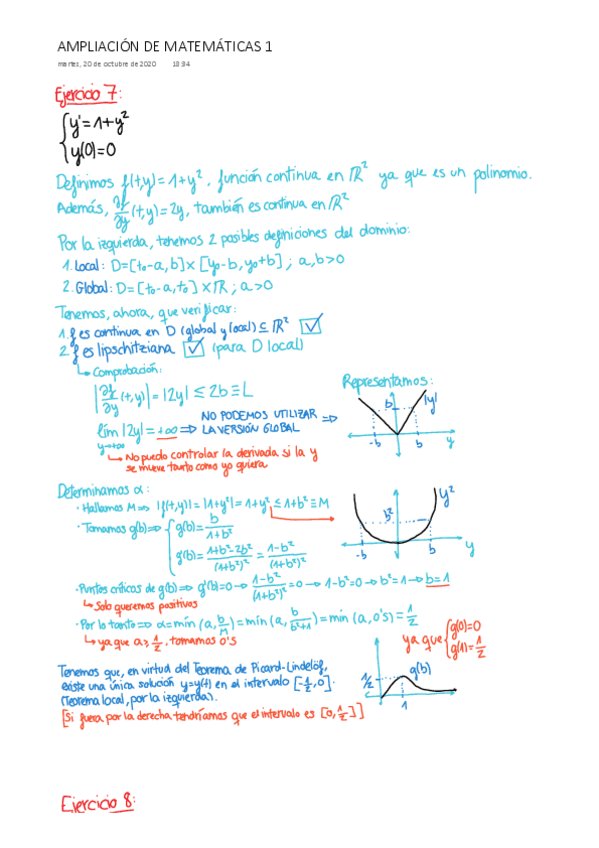 AMPLIACIÓN DE MATEMÁTICAS 1
martes, 20 de octubre de 2020 18:34
Ejercicio 7:
{ y' = 1+y²
y(0)=0
Definimos f(t,y)=1+y², función continua en ℝ² ya que es un polinomio.
Además, ∂f/∂y (t,y)=2y, también es continua en ℝ²
Por la izquierda, tenemos 2 posibles definiciones del dominio:
1. Local: D=[t₀-a, b]×[y₀-b, y₀+b] ; a,b>0
2. Global: D=[t₀-a, t₀]×ℝ ; a>0
Tenemos, ahora, que verificar:
1. f es continua en D (global y local) ⊆ ℝ² ☑
2. f es lipschitziana ☑ (para D local)
↳ Comprobación:
|∂f/∂y (t,y)| = |2y| ≤ 2b ≡ L
lím |2y| = +∞ ⇒ NO PODEMOS UTILIZAR LA VERSIÓN GLOBAL ⇒
y→+∞
↳ No puedo controlar la derivada si la y
se mueve tanto como yo quiera
Representamos:
b |y|
-b b y
Determinamos α:
· Hallamos M ⇒ |f(t,y)| = |1+y²| = 1+y² ≤ 1+b² ≡ M
· Tomamos g(b) ⇒ { g(b) = b/(1+b²)
g'(b) = (1+b²-2b²)/(1+b²)² = (1-b²)/(1+b²)²
b² y²
-b b y
· Puntos críticos de g(b) ⇒ g'(b)=0 → (1-b²)/(1+b²)² = 0 → 1-b²=0 → b²=1 → b=1
↳ Solo queremos positivas
· Por lo tanto ⇒ α = mín (a, b/M) = mín (a, b/(b²+1)) = mín (a, 0'5) = 1/2
↳ ya que a ≥ 1/2, tomamos 0'5
ya que { g(0)=0
g(1)=1/2
1/2 g(b)
1
Tenemos que, en virtud del Teorema de Picard-Lindelöf,
existe una única solución y=y(t) en el intervalo [-1/2, 0].
(Teorema local, por la izquierda).
[Si fuera por la derecha tendríamos que el intervalo es [0, 1/2]]
Ejercicio 8: